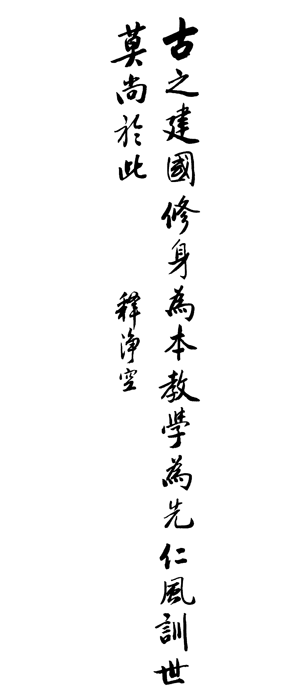 古之建國修身為本教學為先仁風訓世
莫尚於此
釋淨空